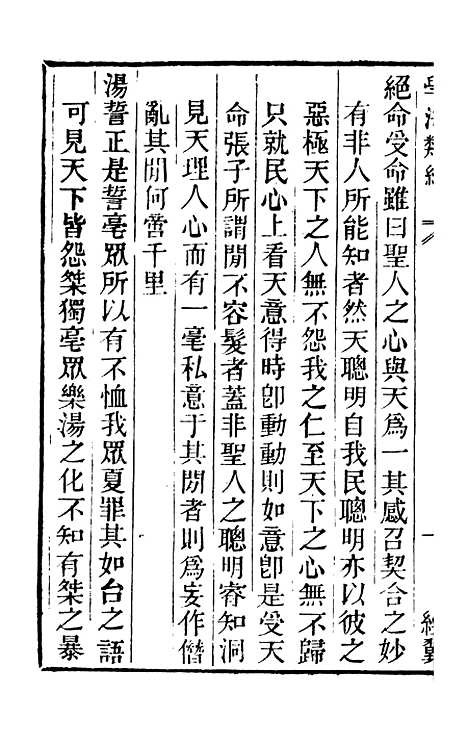 學海類編
一
經翼
絕命受命雖曰聖人之心與天爲一其感召契合之妙
有非人所能知者然天聰明自我民聰明亦以彼之
惡極天下之人無不怨我之仁至天下之心無不歸
只就民心上看天意得時卽動動則如意卽是受天
命張子所謂閒不容髮者蓋非聖人之聰明睿知洞
見天理人心而有一毫私意于其閒者則爲妄作僭
亂其閒何啻千里
湯誓正是誓亳眾所以有不恤我眾夏罪其如台之語
可見天下皆怨桀獨亳眾樂湯之化不知有桀之暴